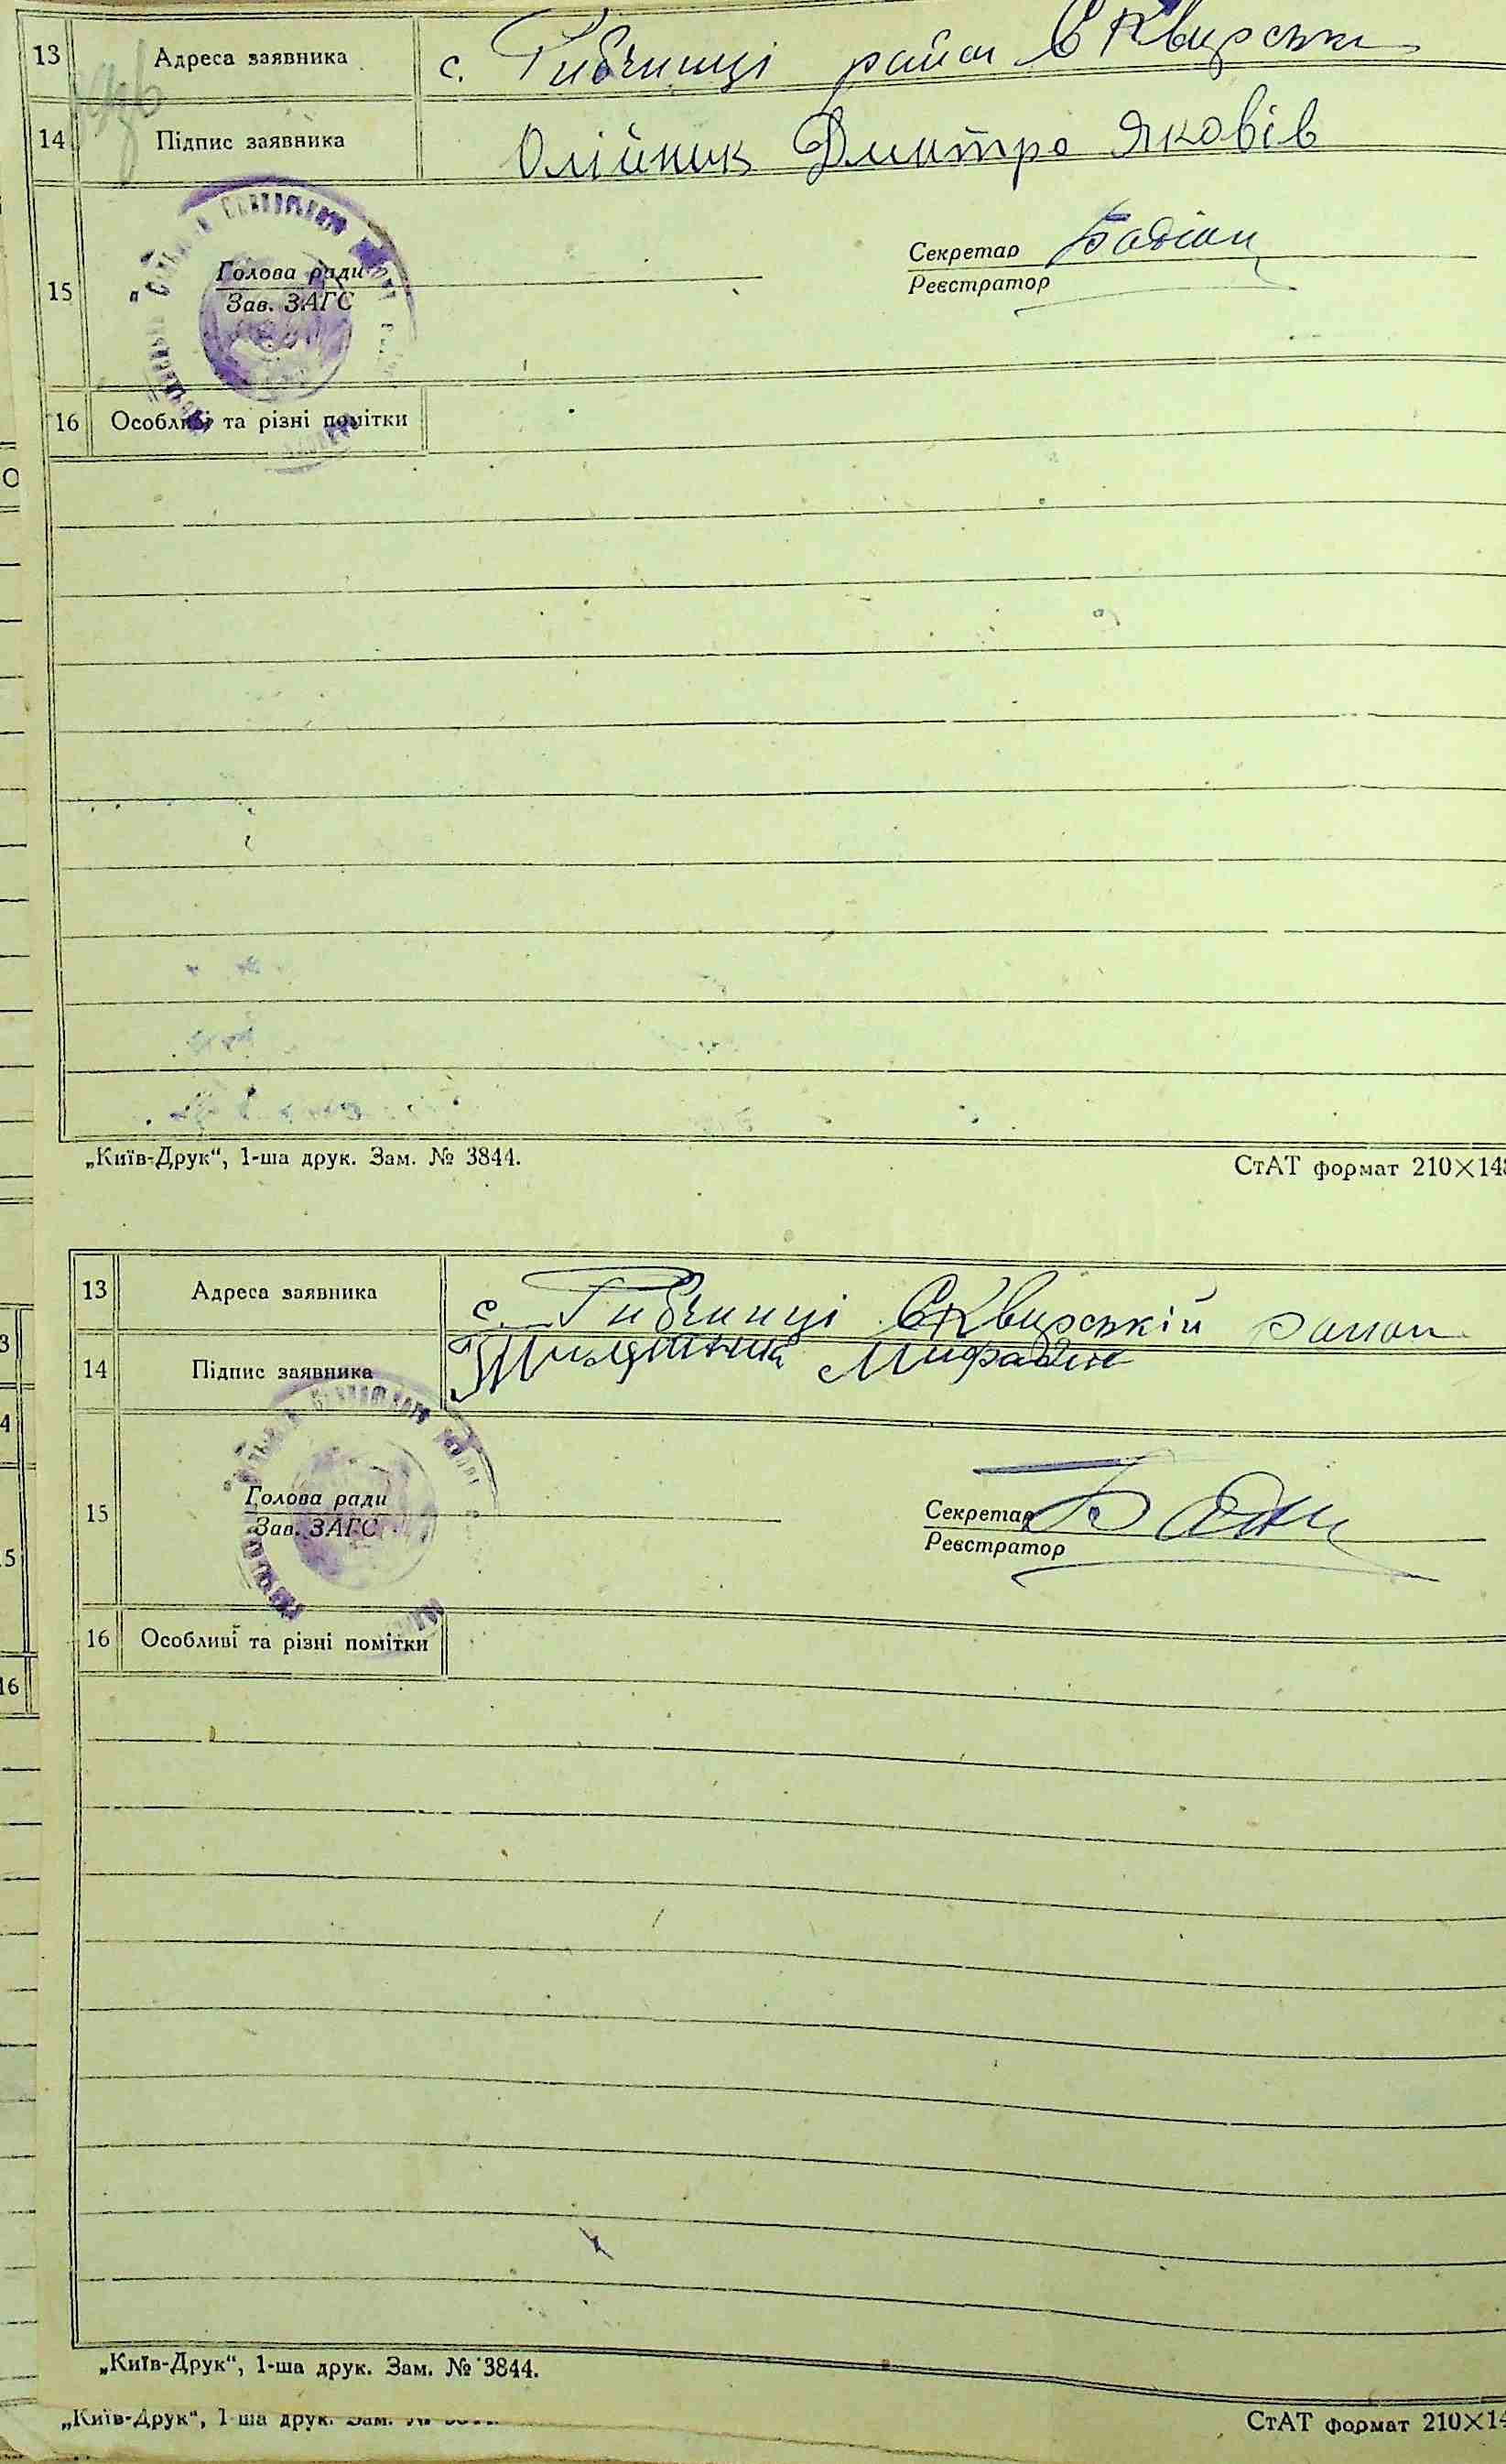 13 Адреса заявника с. Рибчинці район Сквирськи
14 Підпис заявника Олійник Дмитро Яковів
15 Голова ради Секретар
Зав. ЗАГС Реєстратор
16 Особливі та різні помітки
„Київ-Друк“, 1-ша друк. Зам. № 3844. СтАТ формат 210×148
13 Адреса заявника с. Рибчинці Сквирській район
14 Підпис заявника
15 Голова ради Секретар
Зав. ЗАГС Реєстратор
16 Особливі та різні помітки
„Київ-Друк“, 1-ша друк. Зам. № 3844.
„Київ-Друк“, 1-ша друк. СтАТ формат 210×14